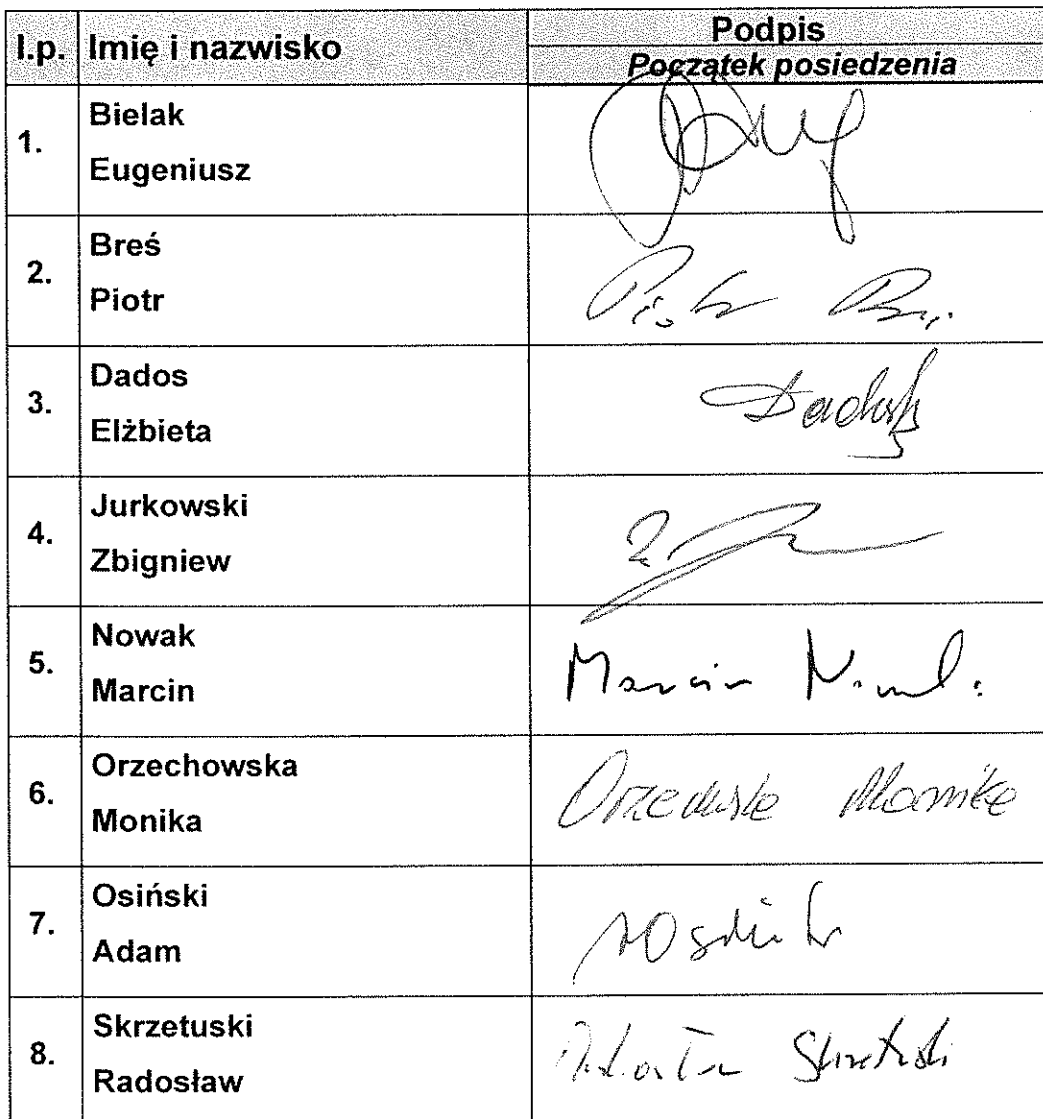 l.p. Imię i nazwisko Podpis
Początek posiedzenia
1. Bielak
Eugeniusz
2. Breś
Piotr
Piotr
3. Dados
Elżbieta
4. Jurkowski
Zbigniew
Z.
5. Nowak
Marcin
Marcin
6. Orzechowska
Monika
Monika
7. Osiński
Adam
8. Skrzetuski
Radosław
Skrzetuski